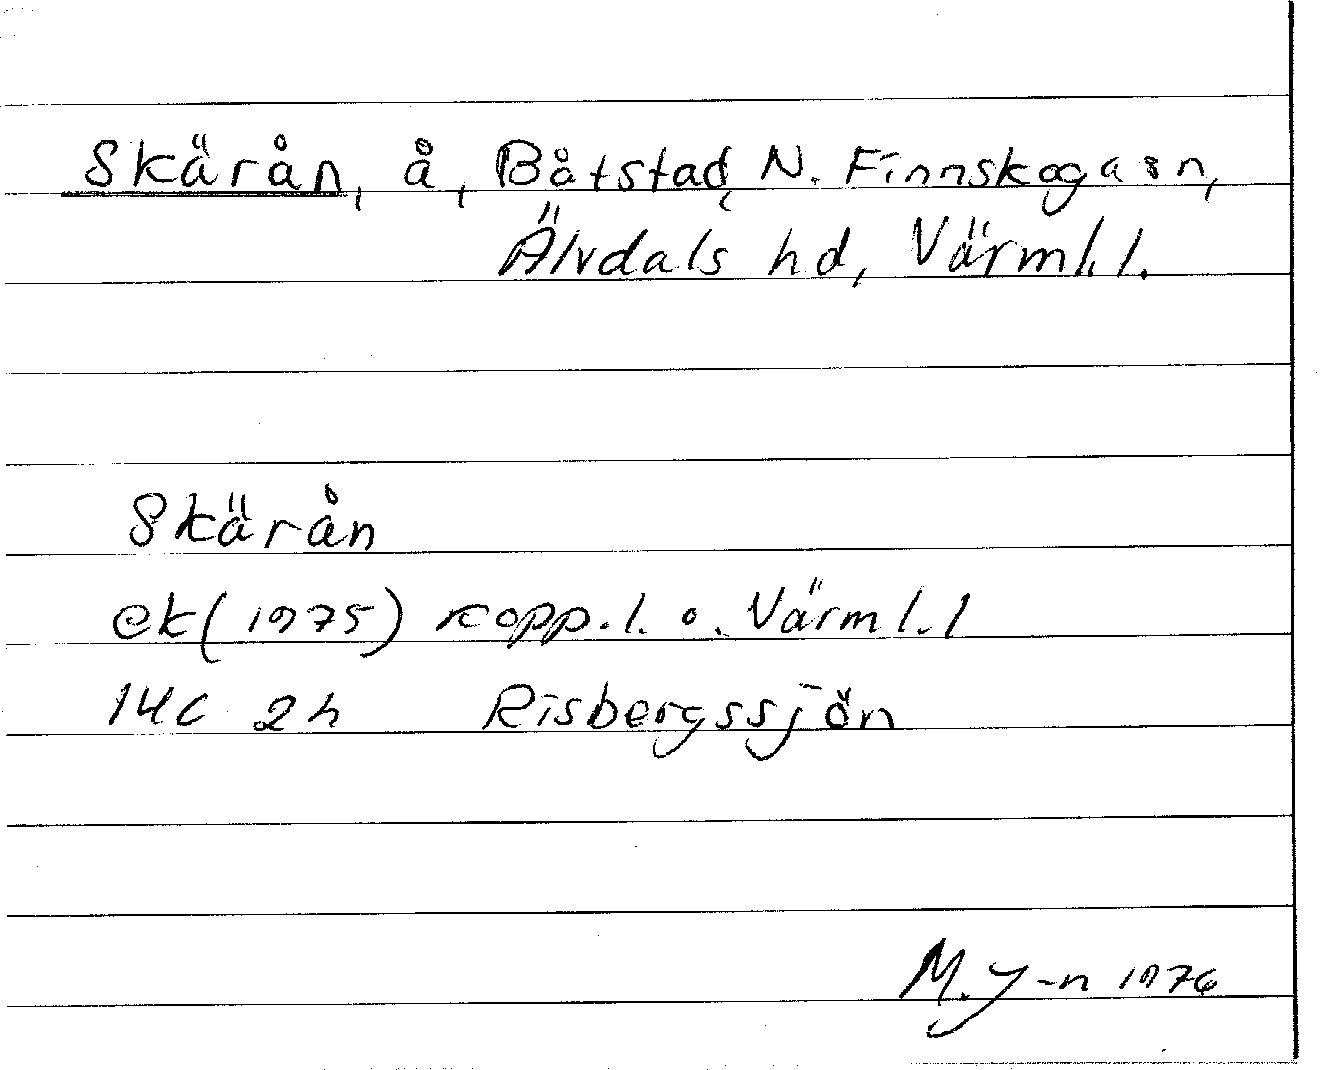 Skärån, å, Båtstad, N. Finnskoga sn,
Älvdals hd, Värml. l.
Skärån
ek (1975) Kopp. l. o. Värml. l
14C 2h Risbergssjön
M. J-n 1976